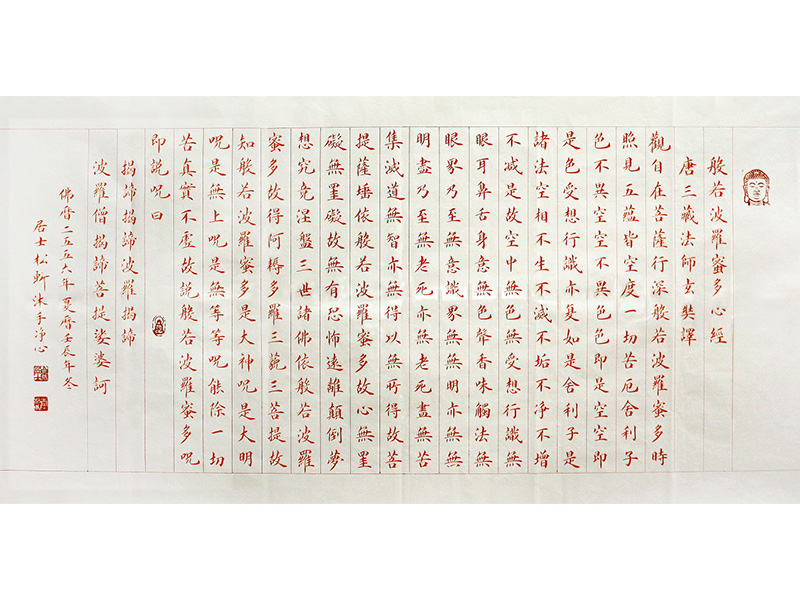 般若波羅蜜多心經
唐三藏法師玄奘譯
觀自在菩薩行深般若波羅蜜多時
照見五蘊皆空度一切苦厄舍利子
色不異空空不異色色即是空空即
是色受想行識亦复如是舍利子是
諸法空相不生不滅不垢不净不增
不减是故空中無色無受想行識無
眼耳鼻舌身意無色聲香味觸法無
眼界乃至無意識界無無明亦無無
明盡乃至無老死亦無老死盡無苦
集滅道無智亦無得以無所得故菩
提薩埵依般若波羅蜜多故心無罣
礙無罣礙故無有恐怖遠離顛倒夢
想究竟涅盤三世諸佛依般若波羅
蜜多故得阿耨多羅三藐三菩提故
知般若波羅蜜多是大神咒是大明
咒是無上咒是無等等咒能除一切
苦真實不虛故說般若波羅蜜多咒
即說咒曰
揭諦揭諦波羅揭諦
波羅僧揭諦菩提娑婆訶
佛曆二五五六年夏曆壬辰年冬
居士松沐手淨心